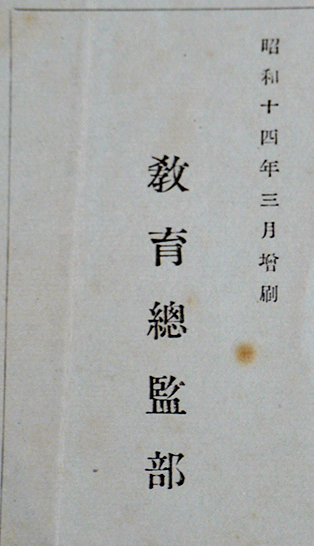 昭和十四年三月增刷
敎育總監部